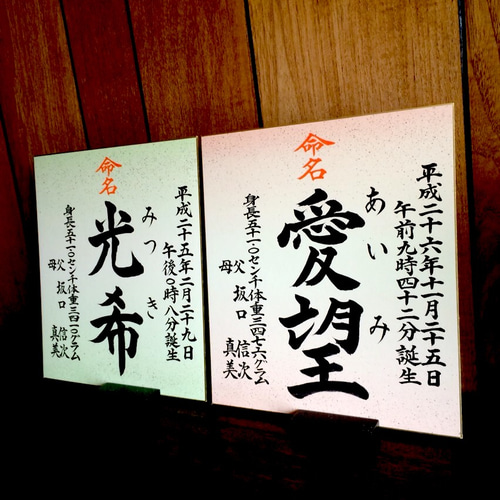 命名
平成二十五年二月二十九日
午後〇時八分誕生
みつき
光希
身長五十一・〇センチ体重三四一〇グラム
父 坂口 信次
母 真美
命名
平成二十六年十一月二十五日
午前九時四十二分誕生
あいみ
愛望
身長五十一・〇センチ体重三四七六グラム
父 坂口 信次
母 真美